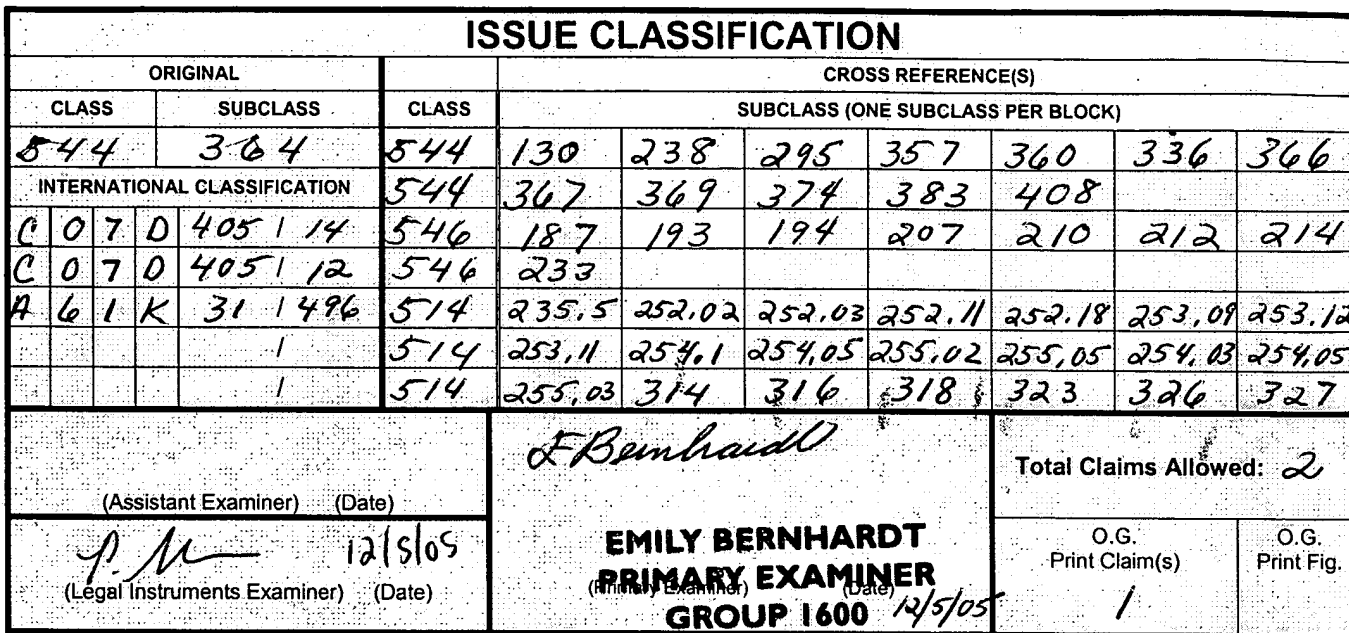 ISSUE CLASSIFICATION
ORIGINAL CROSS REFERENCE(S)
CLASS SUBCLASS CLASS SUBCLASS (ONE SUBCLASS PER BLOCK)
544 364 544 130 238 295 357 360 336 366
INTERNATIONAL CLASSIFICATION 544 367 369 374 383 408
C 0 7 D 405 / 14 546 187 193 194 207 210 212 214
C 0 7 D 405 / 12 546 233
A 6 1 K 31 / 496 514 235.5 252.02 252.03 252.11 252.18 253.09 253.12
/ 514 253.11 254.1 254.05 255.02 255.05 254.03 254.05
/ 514 255.03 314 316 318 323 326 327
E Bernhardt
Total Claims Allowed: 2
(Assistant Examiner) (Date)
12/5/05
(Legal Instruments Examiner) (Date)
EMILY BERNHARDT
PRIMARY EXAMINER
(Primary Examiner) (Date)
GROUP 1600 12/5/05
O.G.
Print Claim(s)
1
O.G.
Print Fig.